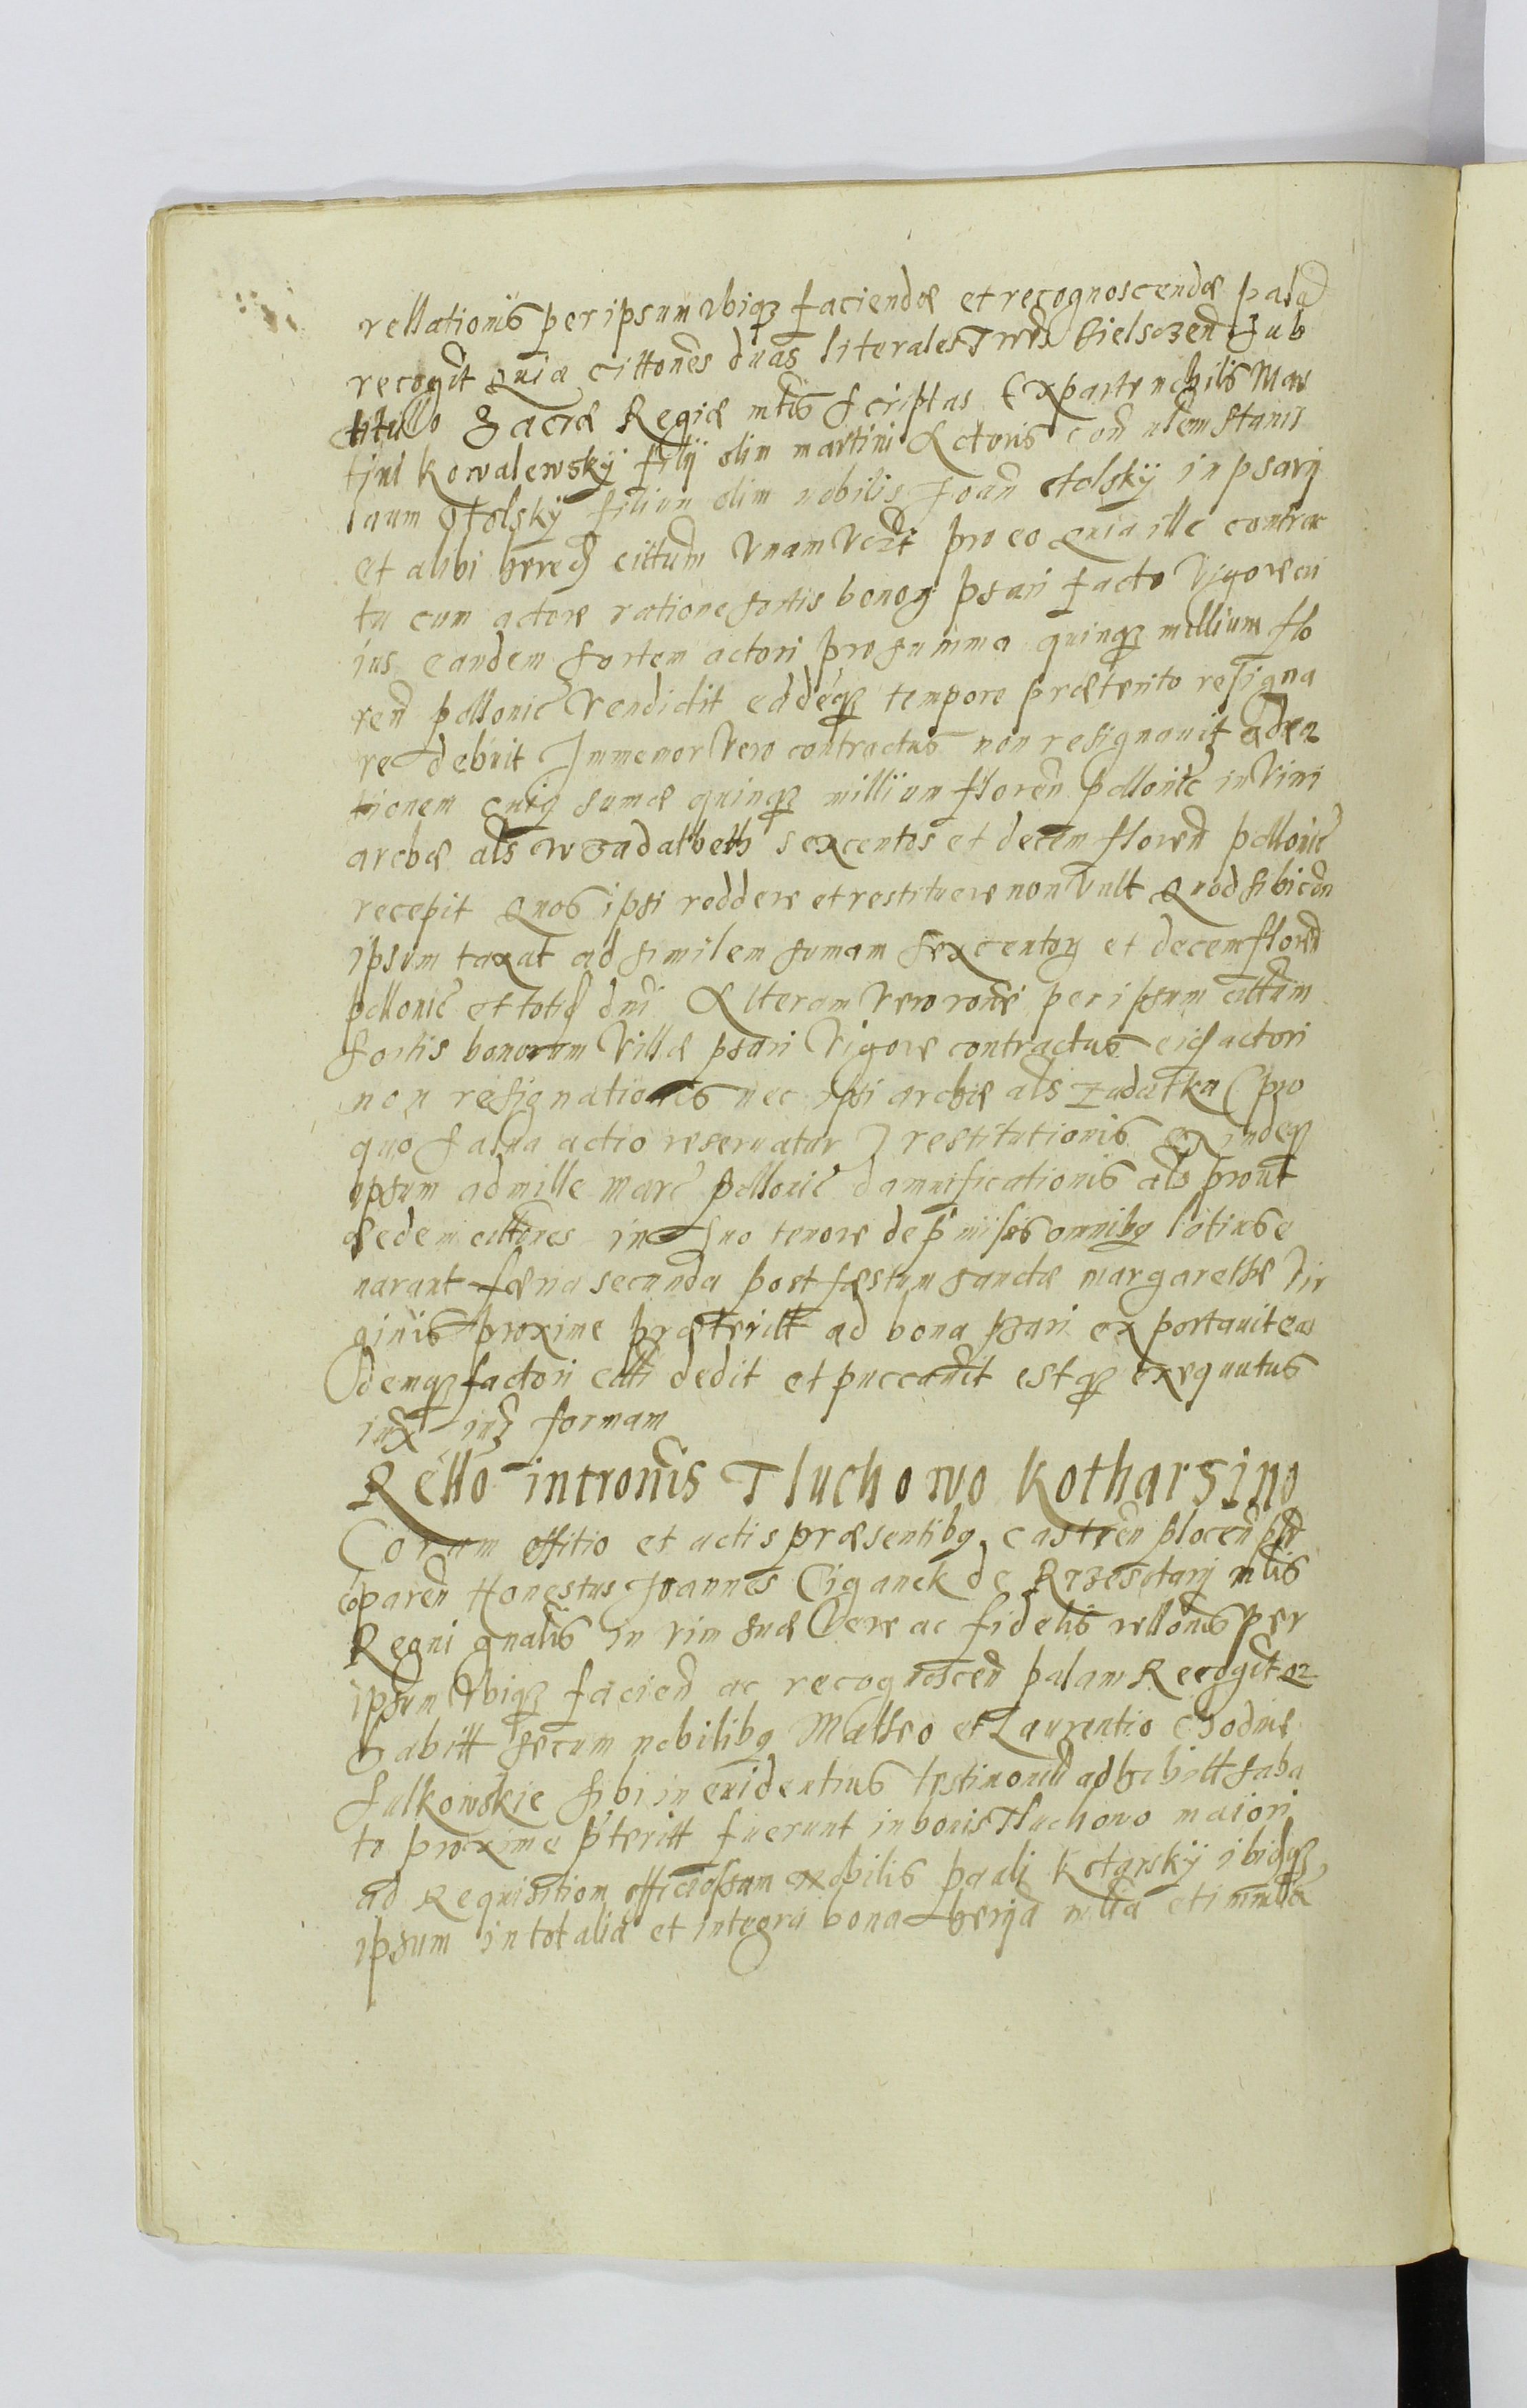 rellationis per ipsum vbiqz faciendæ et recognoscendæ pala
recognt Quia cittones duas literales Trrès Bielsczen Sub
titullo Sacræ Regiæ mtis scriptas Ex parte nobilis Mar
tini Kowalewskÿ filÿ olim martini Actoris con nlem Stanis
laum Stolskÿ filium olim nobilis Joan Stolskÿ in psarÿ
et alibi hered cittum Vnam pro eo Quia ille contrac
tu cum actore ratione sortis bonoꝝ psari facto Vigore cu
ius eandem sortem actori pro summa quinqz millium flo
ren pollonic vendidit eademqz tempore præterito resigna
re debuit Immemor Vero contractus non resignauit ad ra
tionem cuiꝗ sumæ quinqz millium floren pollonic in Vim
arrhæ als wzadathek sexcentos et decem floren pollonic
recepit Quos ipsi reddere et restituere non vult Quod sibi con
ipsum taxat ad similem sumam sexcentoꝝ et decem floren
pollonic et totid dni Alteram vero rone per ipsum cittum
sortis bonorum Villæ psari Vigore contractus eid actori
non resignationis nec ipsi arrhæ als zadatku (pro
quo salua actio reseruatur) restitutionis exindeqz
ipsum ad mille Marc pollonic damnificationis als prout
eædem cittones in suo tenore de pmissis omnibꝗ latius e
narant feria secunda post festum sanctæ margarethæ Vir
ginis proxime præteritt ad bona psari exportauit eas
demqz factori citti dedit et puccauit estqz exequutus
iux iuz formam
Rello intronis Tluchowo Kotharsino
Coram offitio et actis præsentibꝗ castren plocen psn
coparen Honestus Joannes Ciganek de Rzesotarÿ mlis
Regni gnalis in vim suæ Veræ ac fidelis rellonis per
ipsum vbiqz facien ac recognoscen palam Recognt qz
habitt secum nobilibꝗ Matheo et Laurentio Chodnie
sulkowskie sibi in euidentius testimoniu adhibitt saba
to proxime pteritt fuerunt in bonis Tluchowo maiori
ad Requisition officiosam nobilis pauli Kotarskÿ ibidqz
ipsum in totalia et integra bona herÿd nlla et immla